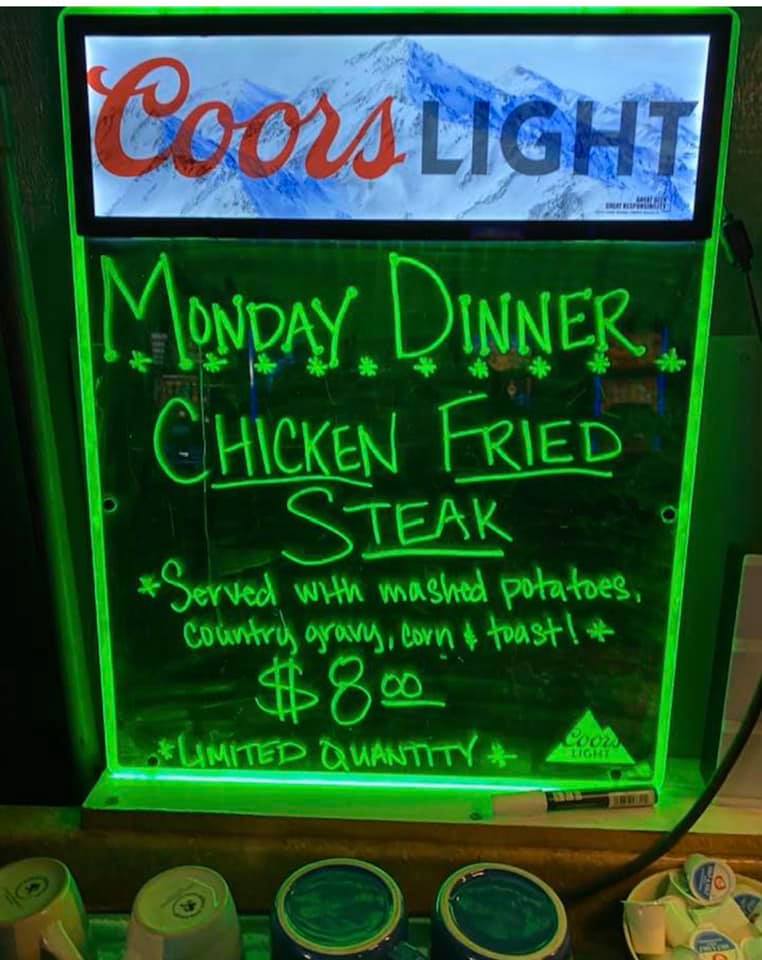 Coors LIGHT
GREAT BEER
GREAT RESPONSIBILITY
MONDAY DINNER
* * * * * * * * * *
CHICKEN FRIED
STEAK
*Served with mashed potatoes,
country gravy, corn & toast! *
$8.00
*LIMITED QUANTITY*
Coors
LIGHT